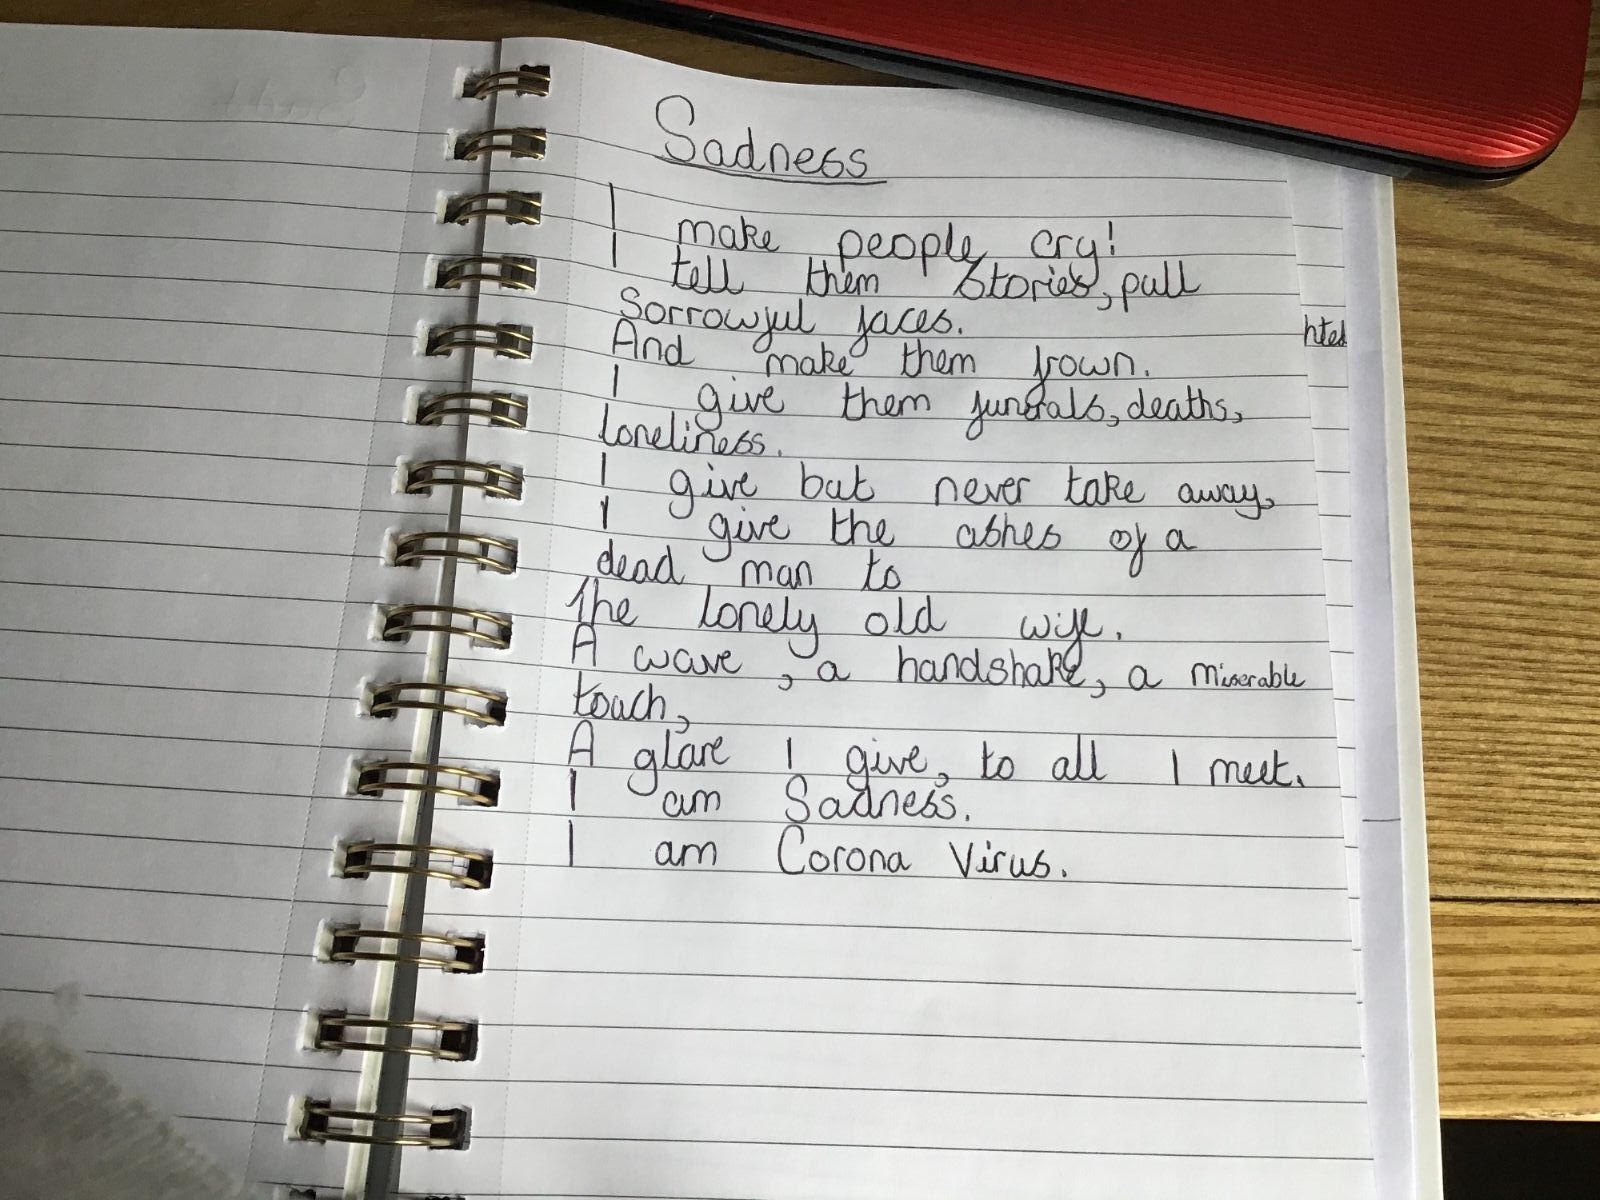 Sadness
I make people cry!
I tell them stories, pull
sorrowful faces.
And make them frown.
I give them funerals, deaths,
loneliness.
I give but never take away,
I give the ashes of a
dead man to
the lonely old wife.
A wave, a handshake, a miserable
touch,
A glare I give, to all I meet.
I am Sadness.
I am Corona Virus.
hted